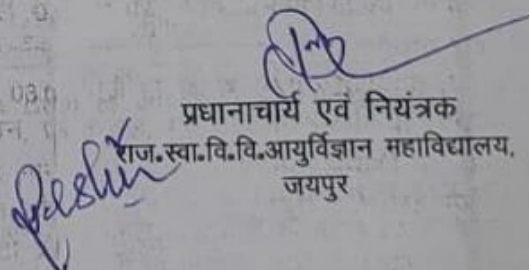 प्रधानाचार्य एवं नियंत्रक
राज.स्वा.वि.वि.आयुर्विज्ञान महाविद्यालय,
जयपुर